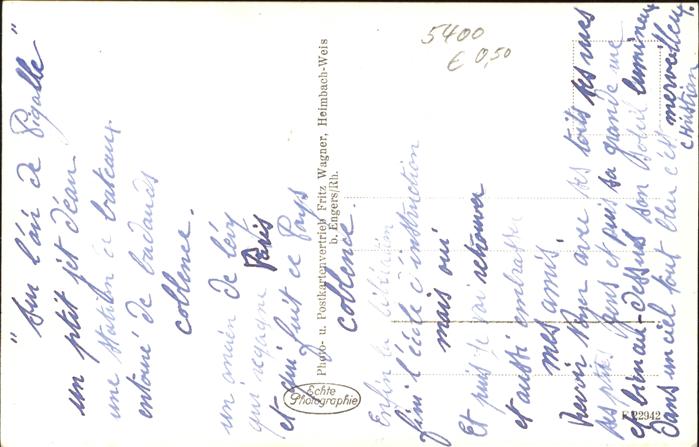 "Sur l'air de Pigalle"
un ptit jet d'eau
une station de bateaux
entouré de badauds
Coblence.
un amien de
qui regagne Paris
et qui fuit ce Pays
Coblence
Enfin la libération
fini l'école d'instruction
mais oui
Et puis je vai retrouver
et aussi embrasser
mes amis.
Revoir avec ses toits ses rues
ses ptits gens et puis sa grande rue
et bien au-dessus son soleil lumineux
Dans un ciel tout bleu c'est merveilleux
Christian
5400
€ 0,50
Photo- u. Postkartenvertrieb Fritz Wagner, Heimbach-Weis
b. Engers/Rh.
Echte
Photographie
F 22942